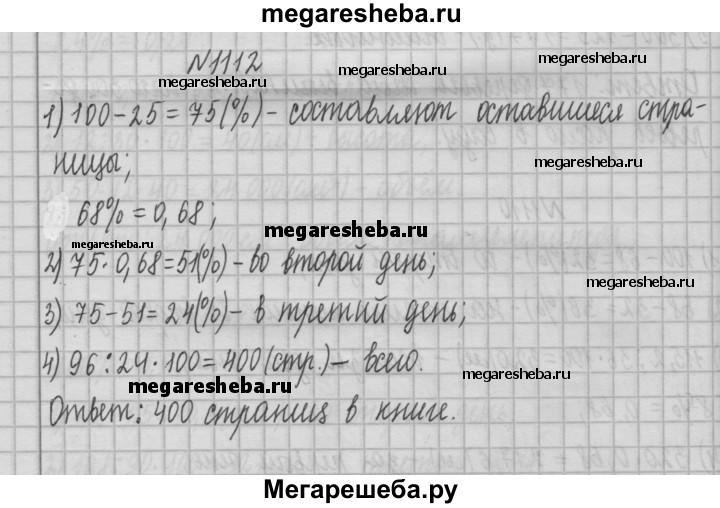 megaresheba.ru
N1112
megaresheba.ru
megaresheba.ru
1) 100-25=75(%)-составляют оставшиеся стра-
megaresheba.ru
ницы;
megaresheba.ru
68%=0,68;
megaresheba.ru
megaresheba.ru
2) 75·0,68=51(%)-во второй день;
megaresheba.ru
3) 75-51=24(%)-в третий день;
4) 96:24·100=400(стр.)-всего.
megaresheba.ru
megaresheba.ru
Ответ: 400 страниц в книге.
Мегарешеба.ру